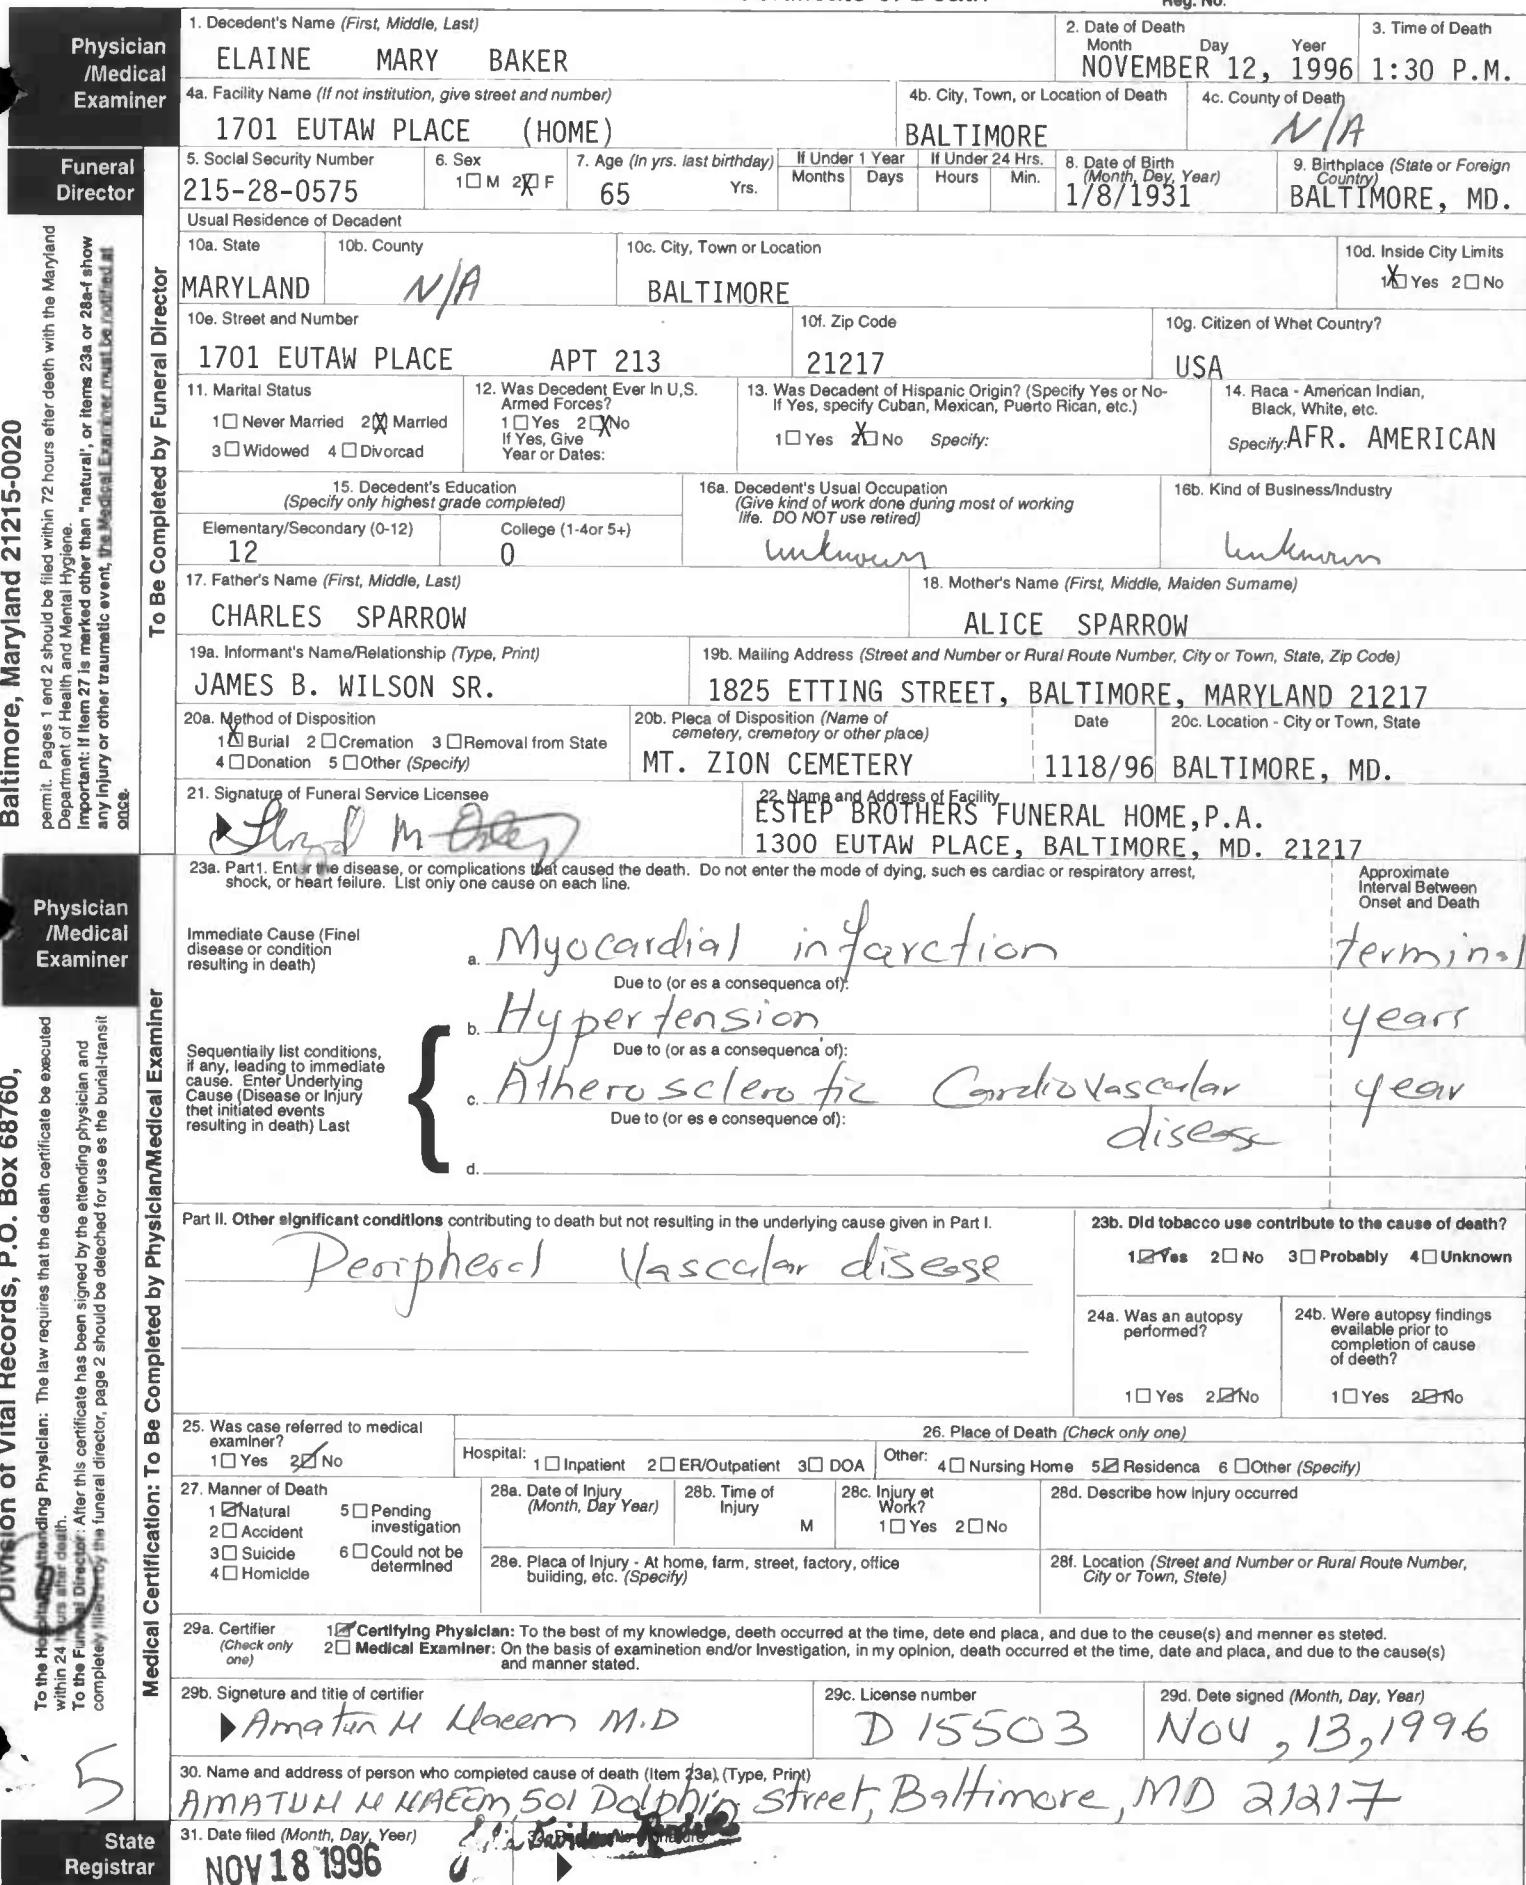 1. Decedent's Name (First, Middle, Last)
ELAINE MARY BAKER
2. Date of Death
Month Day Yeer
NOVEMBER 12, 1996
3. Time of Death
1:30 P.M.
Physician
/Medical
Examiner
4a. Facility Name (If not institution, give street and number)
1701 EUTAW PLACE (HOME)
4b. City, Town, or Location of Death
BALTIMORE
4c. County of Death
N/A
Funeral
Director
5. Social Security Number
215-28-0575
6. Sex
1☐ M 2☒ F
7. Age (In yrs. last birthday)
65 Yrs.
If Under 1 Year
Months Days
If Under 24 Hrs.
Hours Min.
8. Date of Birth
(Month, Dey, Year)
1/8/1931
9. Birthplace (State or Foreign
Country)
BALTIMORE, MD.
Usual Residence of Decadent
10a. State
MARYLAND
10b. County
N/A
10c. City, Town or Location
BALTIMORE
10d. Inside City Limits
1☒ Yes 2☐ No
10e. Street and Number
1701 EUTAW PLACE APT 213
10f. Zip Code
21217
10g. Citizen of Whet Country?
USA
11. Marital Status
1☐ Never Married 2☒ Married
3☐ Widowed 4☐ Divorcad
12. Was Decedent Ever In U,S.
Armed Forces?
1☐ Yes 2☒ No
If Yes, Give
Year or Dates:
13. Was Decadent of Hispanic Origin? (Specify Yes or No-
If Yes, specify Cuban, Mexican, Puerto Rican, etc.)
1☐ Yes 2☒ No Specify:
14. Raca - American Indian,
Black, White, etc.
Specify: AFR. AMERICAN
15. Decedent's Education
(Specify only highest grade completed)
Elementary/Secondary (0-12) College (1-4or 5+)
12 0
16a. Decedent's Usual Occupation
(Give kind of work done during most of working
life. DO NOT use retired)
unknown
16b. Kind of Business/Industry
unknown
17. Father's Name (First, Middle, Last)
CHARLES SPARROW
18. Mother's Name (First, Middle, Maiden Surname)
ALICE SPARROW
19a. Informant's Name/Relationship (Type, Print)
JAMES B. WILSON SR.
19b. Mailing Address (Street and Number or Rural Route Number, City or Town, State, Zip Code)
1825 ETTING STREET, BALTIMORE, MARYLAND 21217
20a. Method of Disposition
1☒ Burial 2☐ Cremation 3☐ Removal from State
4☐ Donation 5☐ Other (Specify)
20b. Pleca of Disposition (Name of
cemetery, cremetory or other place)
MT. ZION CEMETERY
Date
1118/96
20c. Location - City or Town, State
BALTIMORE, MD.
21. Signature of Funeral Service Licensee
22. Name and Address of Facility
ESTEP BROTHERS FUNERAL HOME,P.A.
1300 EUTAW PLACE, BALTIMORE, MD. 21217
To Be Completed by Funeral Director
Baltimore, Maryland 21215-0020
permit. Pages 1 end 2 should be filed within 72 hours efter deeth with the Maryland
Department of Health and Mental Hygiene.
Important: If Item 27 is marked other than "natural', or items 23a or 28a-f show
any injury or other traumatic event, the Medical Examiner must be notified at
once.
Physician
/Medical
Examiner
23a. Part1. Enter the disease, or complications that caused the death. Do not enter the mode of dying, such es cardiac or respiratory arrest,
shock, or heart feilure. List only one cause on each line.
Approximate
Interval Between
Onset and Death
Immediate Cause (Finel
disease or condition
resulting in death)
a. Myocardial infarction terminal
Due to (or es a consequenca of):
b. Hypertension years
Due to (or as a consequenca of):
Sequentially list conditions,
if any, leading to immediate
cause. Enter Underlying
Cause (Disease or Injury
thet initiated events
resulting in death) Last
c. Atherosclerotic Cardiovascular disease year
Due to (or es e consequence of):
d.
Part II. Other significant conditions contributing to death but not resulting in the underlying cause given in Part I.
Peripheral Vascular disease
23b. Did tobacco use contribute to the cause of death?
1☑ Yes 2☐ No 3☐ Probably 4☐ Unknown
24a. Was an autopsy
performed?
1☐ Yes 2☑ No
24b. Were autopsy findings
eveilable prior to
completion of cause
of deeth?
1☐ Yes 2☑ No
25. Was case referred to medical
examiner?
1☐ Yes 2☑ No
26. Place of Death (Check only one)
Hospital: 1☐ Inpatient 2☐ ER/Outpatient 3☐ DOA
Other: 4☐ Nursing Home 5☑ Residenca 6☐ Other (Specify)
27. Manner of Death
1☑ Natural 5☐ Pending
investigation
2☐ Accident
3☐ Suicide 6☐ Could not be
determined
4☐ Homicide
28a. Date of Injury
(Month, Day Year)
28b. Time of
Injury
M
28c. Injury et
Work?
1☐ Yes 2☐ No
28d. Describe how Injury occurred
28e. Placa of Injury - At home, farm, street, factory, office
building, etc. (Specify)
28f. Location (Street and Number or Rural Route Number,
City or Town, Stete)
29a. Certifier
(Check only
one)
1☑ Certifying Physician: To the best of my knowledge, deeth occurred at the time, date end placa, and due to the ceuse(s) and menner es steted.
2☐ Medical Examiner: On the basis of examinetion end/or Investigation, in my opinion, death occurred et the time, date and placa, and due to the cause(s)
and manner stated.
29b. Signature and title of certifier
Amatun N Naeem M.D
29c. License number
D 15503
29d. Dete signed (Month, Day, Year)
Nov, 13, 1996
30. Name and address of person who completed cause of death (Item 23a) (Type, Print)
AMATUN N NAEEM, 501 Dolphin Street, Baltimore, MD 21217
Medical Certification: To Be Completed by Physician/Medical Examiner
Division of Vital Records, P.O. Box 68760,
To the Hospital/Attending Physician: The law requires that the death certificate be executed
within 24 hours after death.
To the Funeral Director: After this certificate has been signed by the ettending physician and
completely filled in by the funeral director, page 2 should be detached for use es the burial-transit
5
State
Registrar
31. Date filed (Month, Day, Yeer)
NOV 18 1996